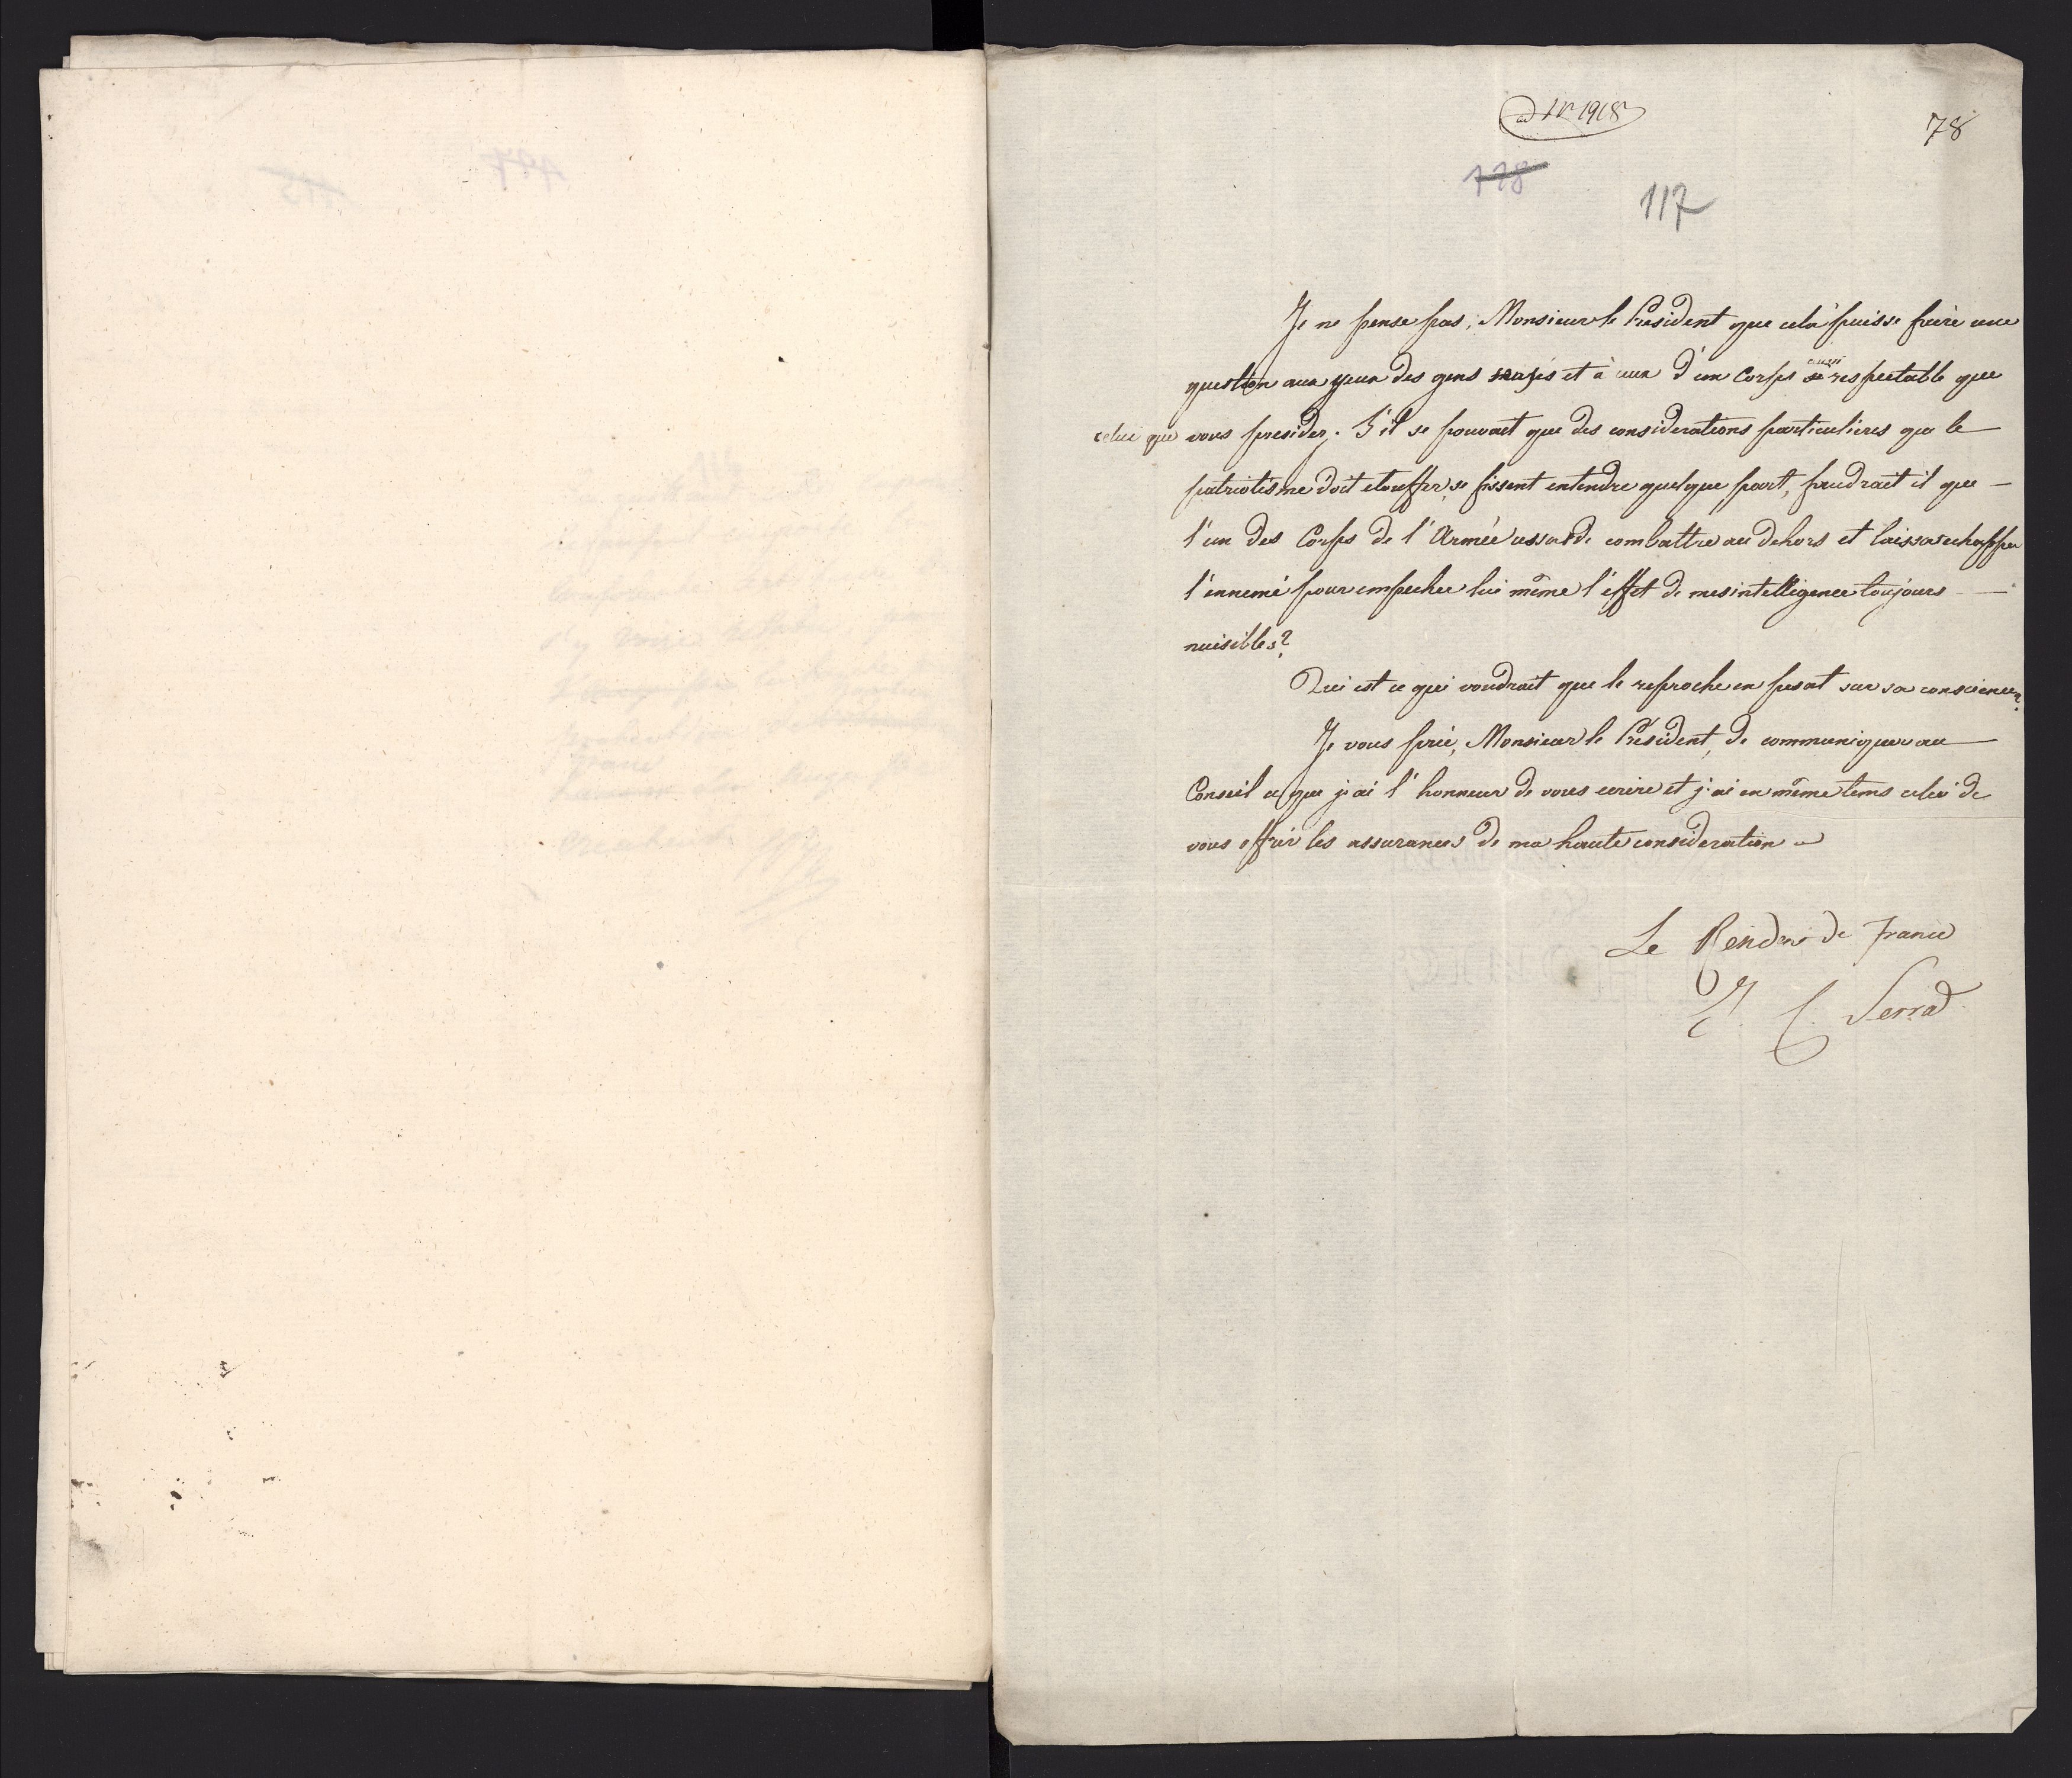 ad Nr 1918
78
118
117
Je ne pense pas, Monsieur le Président que cela puisse faire une
question aux yeux des gens sages et à ceux d'un Corps aussi respectable que
celui que vous presidez. S'il se pouvait que des considerations particulieres que le
patriotisme doit etouffer, se fissent entendre quelque part, faudrait il que
l'un des Corps de l'Armée cessat de combattre au dehors et laissat echapper
l'ennemi pour empecher lui même l'effet de mesintelligence toujours
nuisibles?
Qui est ce qui voudrait que le reproche en pesat sur sa conscience?
Je vous prie, Monsieur le Président, de communiquer au
Conseil ce que j'ai l'honneur de vous ecrire et j'ai en même tems celui de
vous offrir les assurances de ma haute consideration
Le Résident de France
Serra